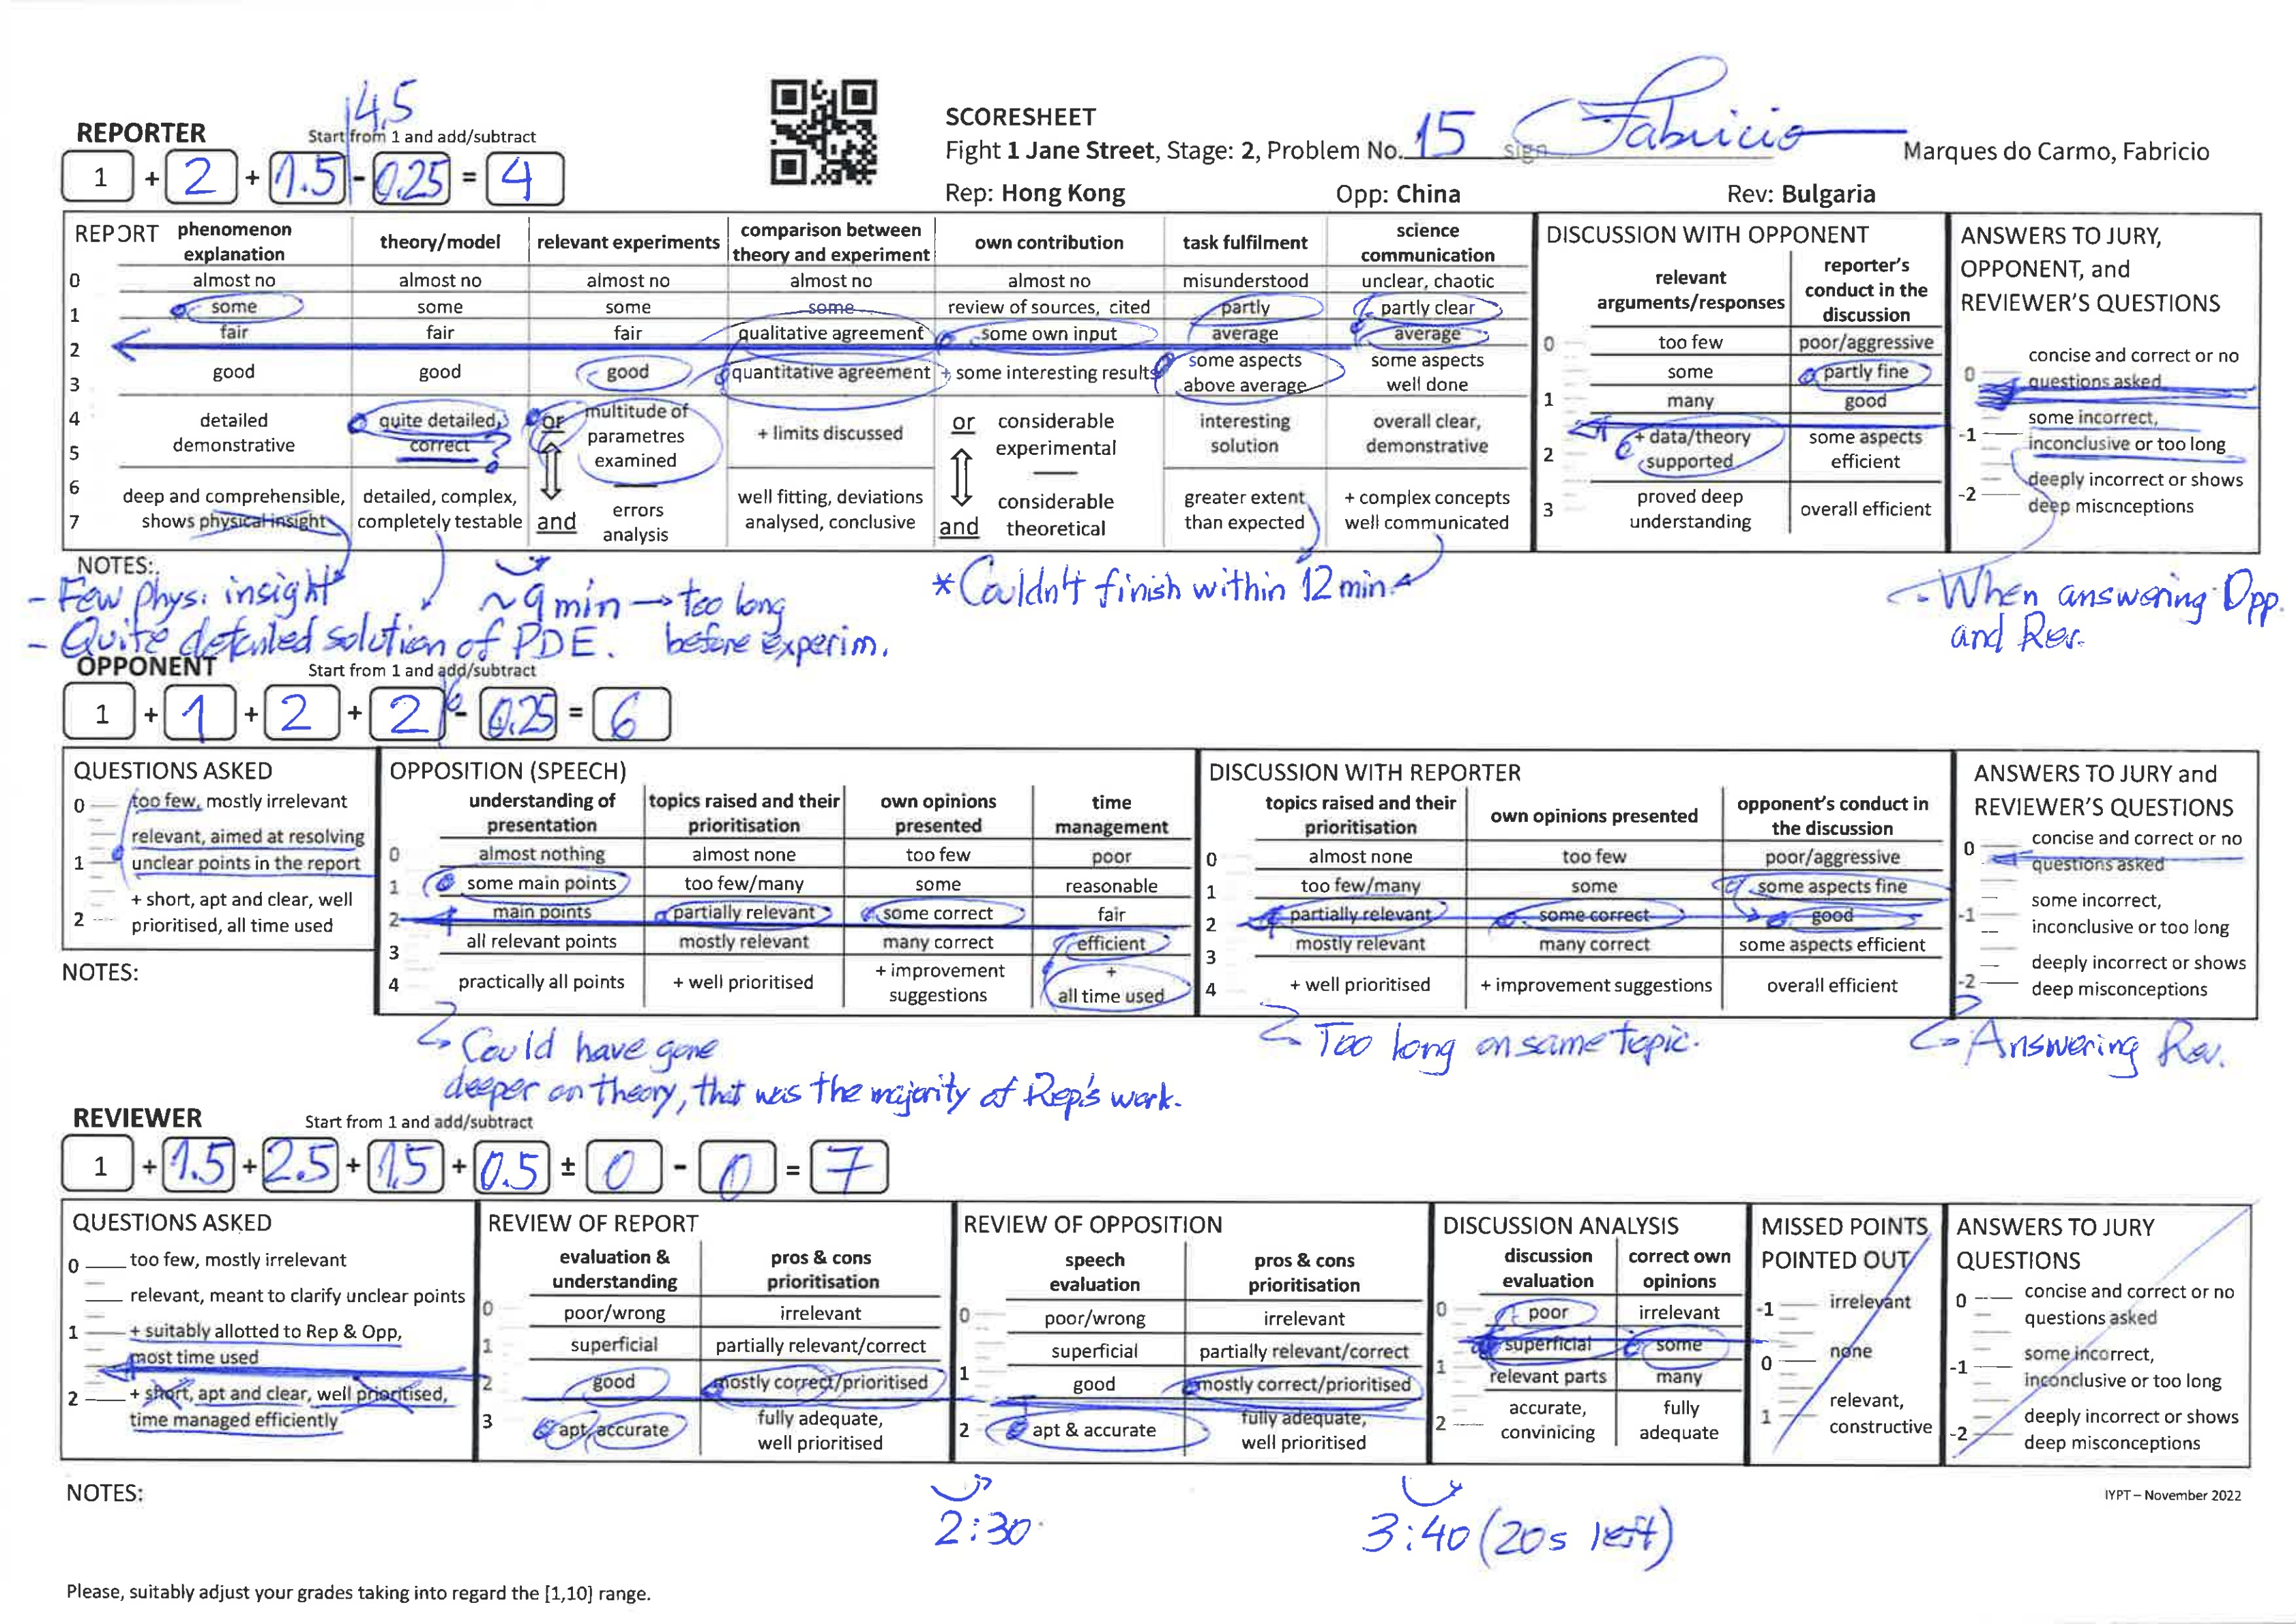 4.5
REPORTER
Start from 1 and add/subtract
1 + 2 + 1.5 - 0.25 = 4
SCORESHEET
Fight 1 Jane Street, Stage: 2, Problem No. 15 sign Fabricio Marques do Carmo, Fabricio
Rep: Hong Kong Opp: China Rev: Bulgaria
REPORT
phenomenon explanation
theory/model
relevant experiments
comparison between theory and experiment
own contribution
task fulfilment
science communication
0 almost no almost no almost no almost no almost no misunderstood unclear, chaotic
1 some some some some review of sources, cited partly partly clear
2 fair fair fair qualitative agreement some own input average average
3 good good good quantitative agreement + some interesting results some aspects above average some aspects well done
4
5
detailed demonstrative
quite detailed, correct ?
or multitude of parametres examined
+ limits discussed
or considerable experimental
interesting solution
overall clear, demonstrative
6
7
deep and comprehensible, shows physical insight
detailed, complex, completely testable
and errors analysis
well fitting, deviations analysed, conclusive
and considerable theoretical
greater extent than expected
+ complex concepts well communicated
DISCUSSION WITH OPPONENT
relevant arguments/responses
reporter's conduct in the discussion
0 too few poor/aggressive
some partly fine
1 many good
2 + data/theory supported some aspects efficient
3 proved deep understanding overall efficient
ANSWERS TO JURY, OPPONENT, and REVIEWER'S QUESTIONS
0 concise and correct or no questions asked
-1 some incorrect, inconclusive or too long
-2 deeply incorrect or shows deep miscnceptions
NOTES:
- Few phys. insight
- Quite detailed solution of PDE.
~9 min → too long
before experim.
* Couldn't finish within 12 min.
When answering Opp.
and Rev.
OPPONENT
Start from 1 and add/subtract
6
1 + 1 + 2 + 2 - 0.25 = 6
QUESTIONS ASKED
0 too few, mostly irrelevant
1 relevant, aimed at resolving unclear points in the report
2 + short, apt and clear, well prioritised, all time used
NOTES:
OPPOSITION (SPEECH)
understanding of presentation
topics raised and their prioritisation
own opinions presented
time management
0 almost nothing almost none too few poor
1 some main points too few/many some reasonable
2 main points partially relevant some correct fair
3 all relevant points mostly relevant many correct efficient
4 practically all points + well prioritised + improvement suggestions + all time used
DISCUSSION WITH REPORTER
topics raised and their prioritisation
own opinions presented
opponent's conduct in the discussion
0 almost none too few poor/aggressive
1 too few/many some some aspects fine
2 partially relevant some correct good
3 mostly relevant many correct some aspects efficient
4 + well prioritised + improvement suggestions overall efficient
ANSWERS TO JURY and REVIEWER'S QUESTIONS
0 concise and correct or no questions asked
-1 some incorrect, inconclusive or too long
-2 deeply incorrect or shows deep misconceptions
Could have gone
deeper on theory, that was the majority of Rep's work.
Too long on same topic.
Answering Rev.
REVIEWER
Start from 1 and add/subtract
1 + 1.5 + 2.5 + 1.5 + 0.5 ± 0 - 0 = 7
QUESTIONS ASKED
0 too few, mostly irrelevant
relevant, meant to clarify unclear points
1 + suitably allotted to Rep & Opp, most time used
2 + short, apt and clear, well prioritised, time managed efficiently
REVIEW OF REPORT
evaluation & understanding
pros & cons prioritisation
0 poor/wrong irrelevant
1 superficial partially relevant/correct
2 good mostly correct/prioritised
3 apt, accurate fully adequate, well prioritised
REVIEW OF OPPOSITION
speech evaluation
pros & cons prioritisation
0 poor/wrong irrelevant
superficial partially relevant/correct
1 good mostly correct/prioritised
2 apt & accurate fully adequate, well prioritised
DISCUSSION ANALYSIS
discussion evaluation
correct own opinions
0 poor irrelevant
superficial some
1 relevant parts many
2 accurate, convinicing fully adequate
MISSED POINTS POINTED OUT
-1 irrelevant
0 none
1 relevant, constructive
ANSWERS TO JURY QUESTIONS
0 concise and correct or no questions asked
-1 some incorrect, inconclusive or too long
-2 deeply incorrect or shows deep misconceptions
NOTES:
2:30
3:40 (20s left)
IYPT – November 2022
Please, suitably adjust your grades taking into regard the [1,10] range.